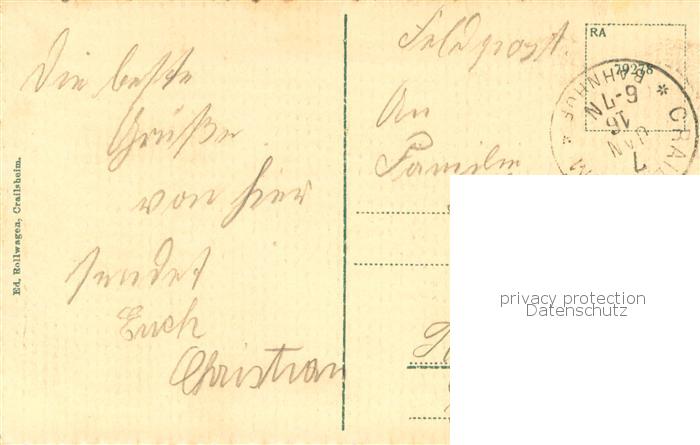 Die beste
Grüße
von hier
sendet
Euch
Christian
Ed. Rollwagen, Crailsheim.
Feldpost.
An
Familie
RA
79278
CRAIL
BAHNHOF
7
JAN
16
6-7N
privacy protection
Datenschutz